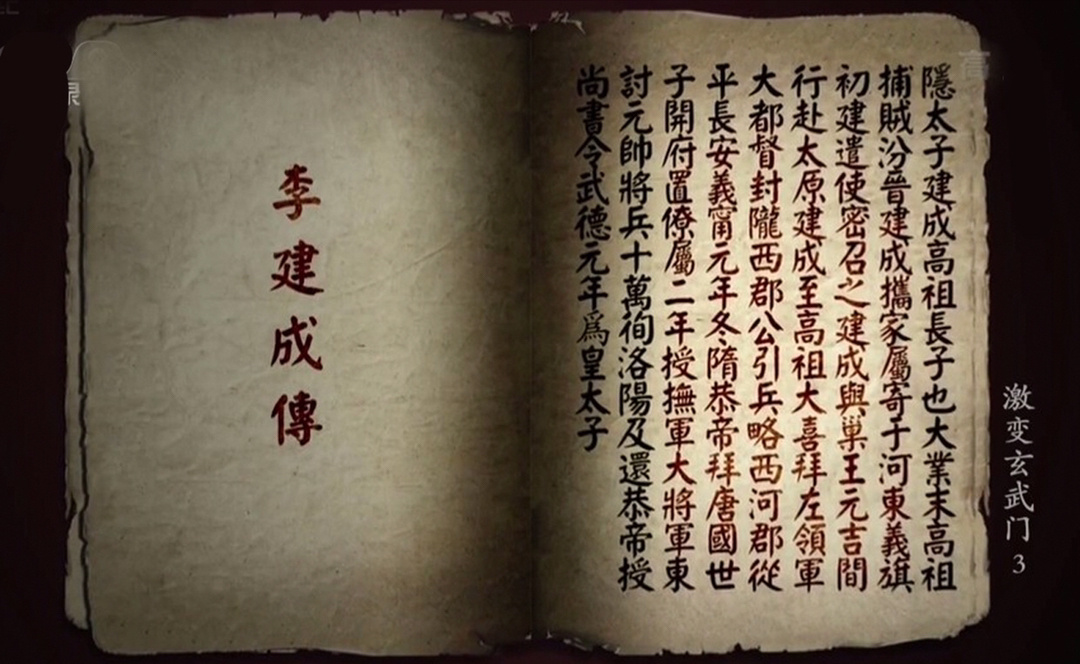 隱太子建成高祖長子也大業末高祖
捕賊汾晉建成攜家屬寄于河東義旗
初建遣使密召之建成與巢王元吉間
行赴太原建成至高祖大喜拜左領軍
大都督封隴西郡公引兵略西河郡從
平長安義甯元年冬隋恭帝拜唐國世
子開府置僚屬二年授撫軍大將軍東
討元帥將兵十萬徇洛陽及還恭帝授
尚書令武德元年爲皇太子
李建成傳
激变玄武门3
高